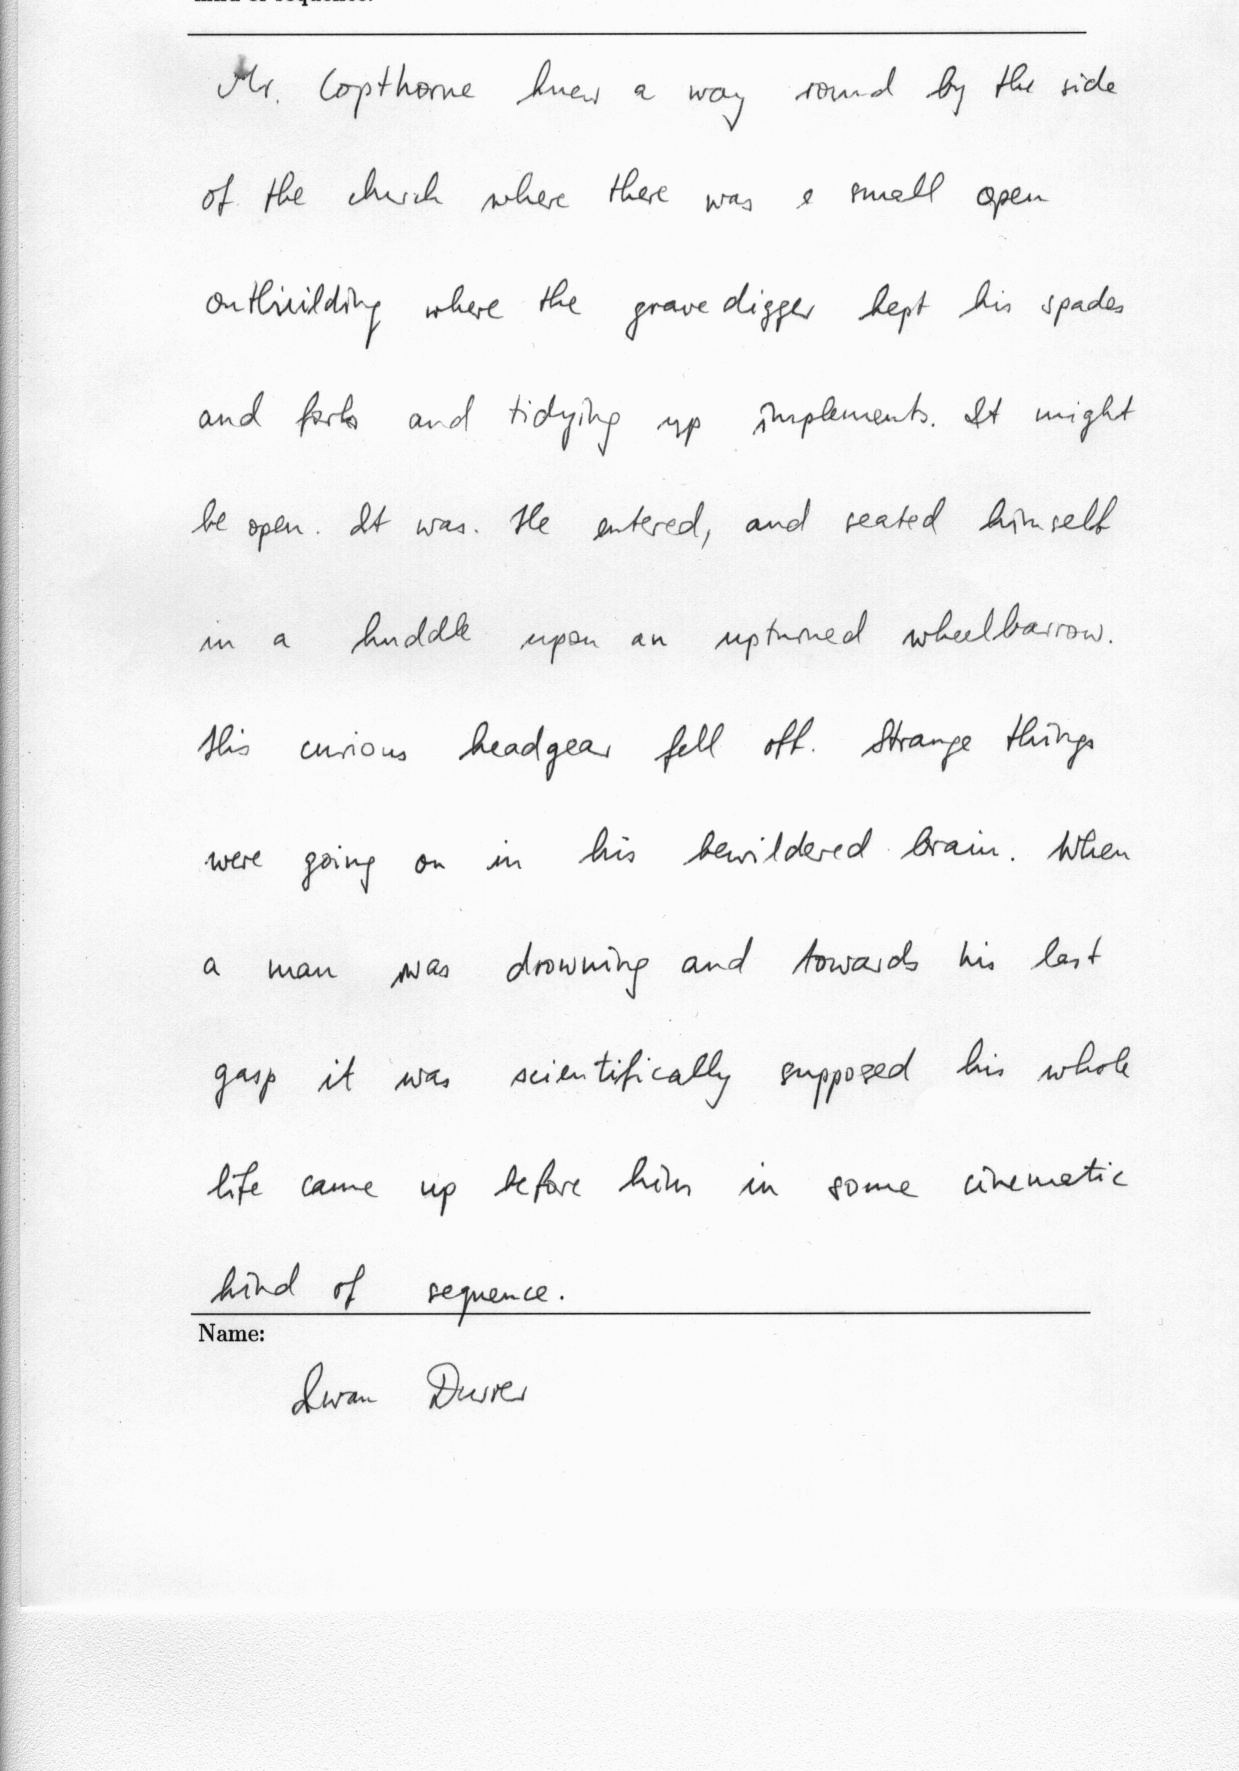 Mr. Copthorne knew a way round by the side
of the church where there was a small open
outbuilding where the gravedigger kept his spades
and forks and tidying up implements. It might
be open. It was. He entered, and seated himself
in a huddle upon an upturned wheelbarrow.
His curious headgear fell off. Strange things
were going on in his bewildered brain. When
a man was drowning and towards his last
gasp it was scientifically supposed his whole
life came up before him in some cinematic
kind of sequence.
Name: